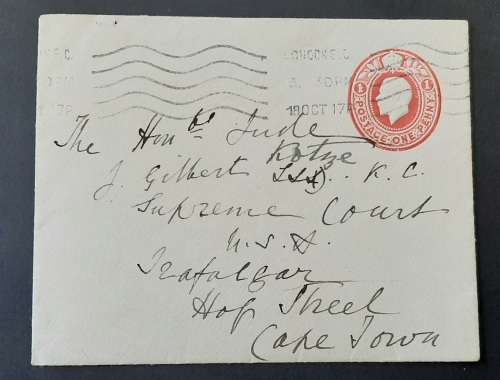 E.C. LONDON E.C.
3. 30PM
17 18 OCT 17
POSTAGE·ONE PENNY
1 1
The Honble Jude
Kotze
J. Gilbert K.C.
Supreme Court
U.S.A.
Trafalgar
Hof Street
Cape Town